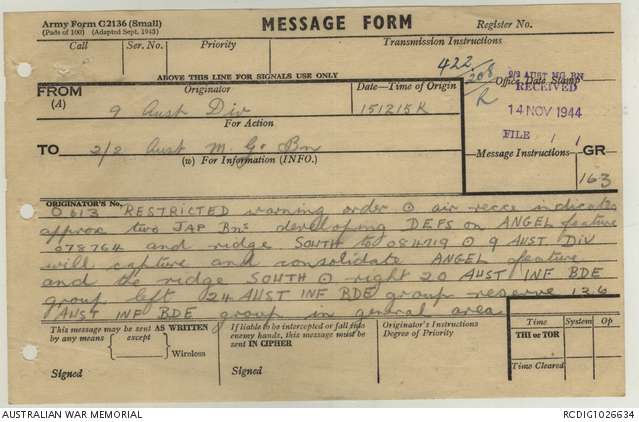 Army Form C2136 (Small)
(Pads of 100) (Adapted Sept. 1943)
MESSAGE FORM
Register No.
Call
Ser. No.
Priority
Transmission Instructions
ABOVE THIS LINE FOR SIGNALS USE ONLY
422
208
R
2/2 AUST MG BN
Office Date Stamp
RECEIVED
14 NOV 1944
FILE / /
FROM
(A)
Originator
9 Aust Div
Date—Time of Origin
151215K
For Action
TO
2/2 Aust M. G. Bn
(w) For Information (INFO.)
Message Instructions
GR
163
ORIGINATOR'S No.
O613 RESTRICTED warning order ⊙ air recce indicates
approx two JAP Bns developing DEFS on ANGEL feature
078764 and ridge SOUTH to 084719 ⊙ 9 AUST DIV
will capture and consolidate ANGEL feature
and the ridge SOUTH ⊙ right 20 AUST INF BDE
group left 24 AUST INF BDE group reserve 136
AUST INF BDE group in general area
This message may be sent AS WRITTEN
by any means { except } Wireless
Signed
If liable to be intercepted or fall into
enemy hands, this message must be
sent IN CIPHER
Signed
Originator's Instructions
Degree of Priority
Time
System
Op
THI or TOR
Time Cleared
AUSTRALIAN WAR MEMORIAL
RCDIG1026634